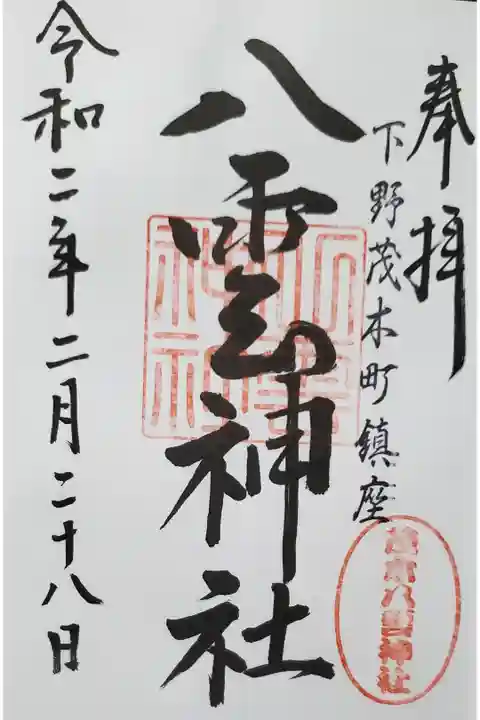 奉拝
下野茂木町鎮座
八雲神社
茂木八雲神社
令和二年二月二十八日